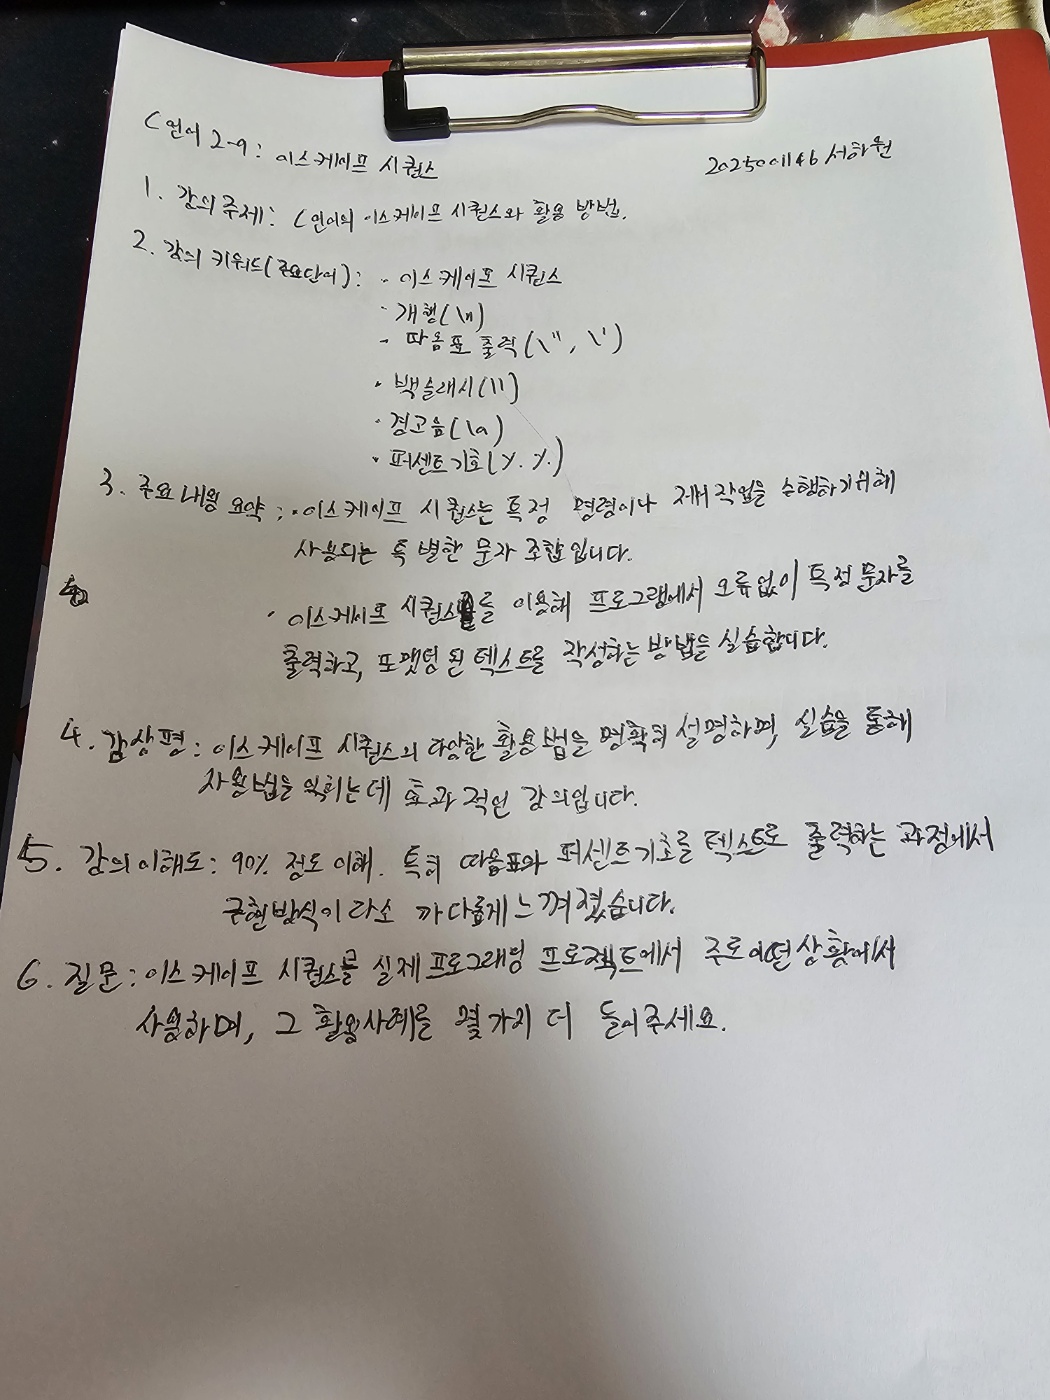 C언어 2-9: 이스케이프 시퀀스
2025001146 서하원
1. 강의주제: C언어의 이스케이프 시퀀스와 활용 방법.
2. 강의 키워드(주요단어): · 이스케이프 시퀀스
· 개행(\n)
· 따옴표 출력(\", \')
· 백슬래시(\\)
· 경고음(\a)
· 퍼센트기호(%%)
3. 주요내용 요약: · 이스케이프 시퀀스는 특정 명령이나 제어작업을 수행하기위해
사용되는 특별한 문자 조합입니다.
· 이스케이프 시퀀스를 이용해 프로그램에서 오류없이 특정 문자를
출력하고, 포맷팅 된 텍스트를 작성하는 방법을 실습합니다.
4. 감상평: 이스케이프 시퀀스의 다양한 활용법을 명확히 설명하며, 실습을 통해
사용법을 익히는데 효과적인 강의입니다.
5. 강의이해도: 90% 정도 이해. 특히 따옴표와 퍼센트기호를 텍스트로 출력하는 과정에서
구현방식이 다소 까다롭게 느껴졌습니다.
6. 질문: 이스케이프 시퀀스를 실제프로그래밍 프로젝트에서 주로 어떤상황에서
사용하며, 그 활용사례를 몇가지 더 들어주세요.